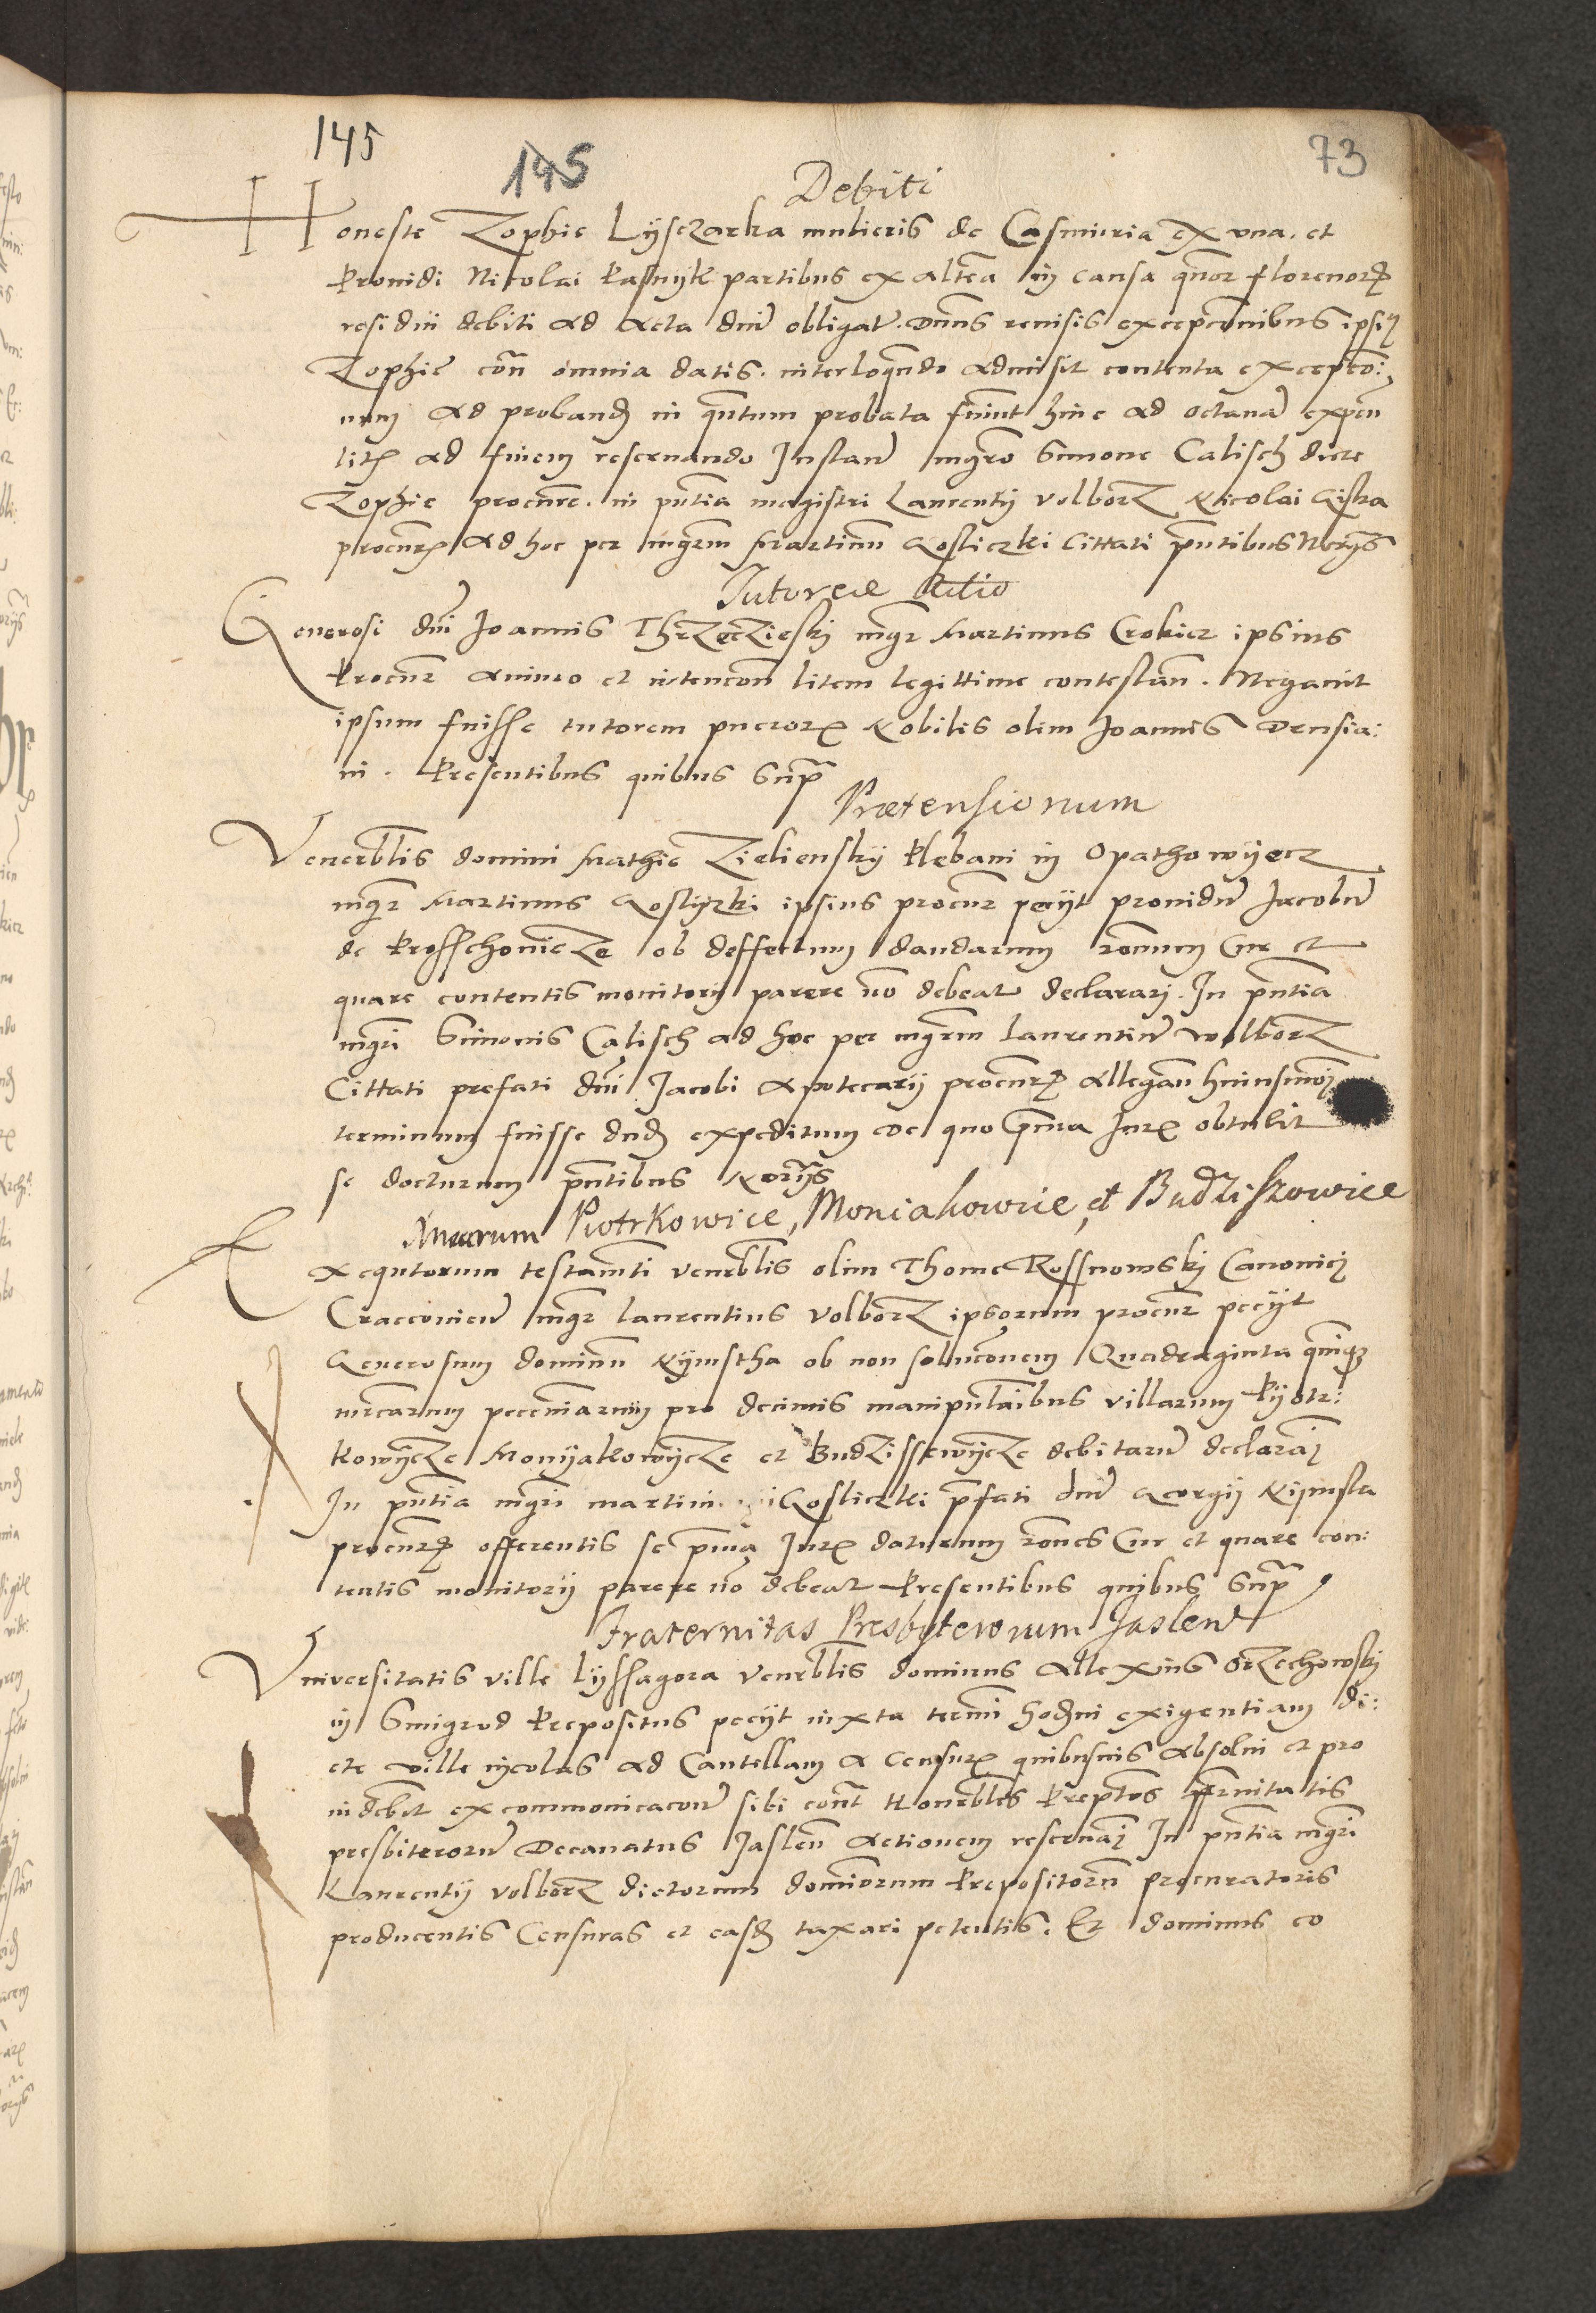 145
145
73
Debiti
Honeste Zophie Lysczarka mulieris de Casmiria ex una. et
Providi Nicolai Kasnyk partibus ex altera in causa quor florenorum
residui debiti ad acta dni obligat. Dnus revisis excepcionibus ipsius
Zophie con omnia datis. interloqndo admisit contenta excepcio:
num ad proband in qntum probata fuerint hinc ad octavam
litis ad finem reservando Instan mgro Simone Calisch dicte
Zophie procure. in pntia magistri Laurentij Volborz Nicolai
procuris ad hoc per mgrm Martinu Gosliczki Cittati pntibus Noryis
Tutoreae Actio
Generosi dni Joannis Thrzeczieski mgr Martinus Crokier ipsius
Procur animo et intencon litem legittime contestan. Negavit
ipsum fuisse tutorem puerorum Nobilis olim Joannis Densia:
ni. Presentibus quibus Supra
Praetensionum
Venerblis domini Mathie Zieliensky Plebani in Opathowyecz
mgr Martinus Goslyczki ipsius procur pecijt providu Jacobu
de Prosschovicze ob deffectum dandarum ronum Cur et
quare contentis monitorij parere no debeat declarari. In pntia
mgri Simonis Calisch ad hoc per mgrm Laurentiu Wolborz
Cittati prefati dni Jacobi Apotecarij procuris allegan huiusmoi
terminum fuisse dud expeditum de quo prima Juris obtulit
se docturum pntibus Noryis
Piotrkowice, Moniakowice, et Budziszowice
Exequtorum testamti venerblis olim Thome Rossnowski Canonici
Cracovien mgr Laurentius Volborz ipsorum procur pecijt
Generosum dominu Kymstha ob non solucionem Quadraginta quinque
mrcarum pecuniarum pro decimis manipulaibus villarum Pyotr:
kowycze Monyakowycze et Budzissewycze debitaru declarai
In pntia mgri martini Gosliczki pfati dni Georgij Kymsta
procuris offerentis se prima Juris daturum rones Cur et quare con:
tentis monitorij parere no debeat Presentibus quibus Supra
Fraternitas Presbyterorum Jaslen
Universitatis ville Lyssagora Venerblis dominus Allexius Orzechowski
in Smigrod Prepositus pecijt iuxta termi hodierni exigentiam di:
cte ville incolas ad Cautellam a Censuris quibusvis absolvi et pro
indebit excommonicacon sibi cont Honorbles Preptos frnitatis
presbiteroru Decanatus Jaslen actionem reservai In pntia mgri
Laurentij Volborz dictorum dominorum Prepositoru procuratoris
producentis Censuras et easd taxari petentis. Et dominus eo